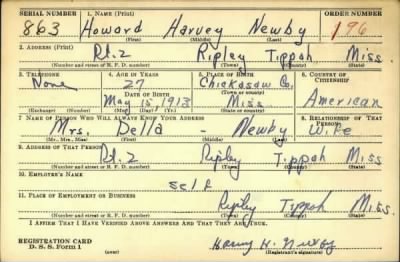 SERIAL NUMBER 1. NAME (Print) ORDER NUMBER
863 Howard Harvey Newby 196
(First) (Middle) (Last)
2. ADDRESS (Print)
Rt.2 Ripley Tippah Miss.
(Number and street or R. F. D. number) (Town) (County) (State)
3. TELEPHONE 4. AGE IN YEARS 5. PLACE OF BIRTH 6. COUNTRY OF CITIZENSHIP
None 27 Chickasaw Co.
DATE OF BIRTH (Town or county)
May 15, 1913 Miss. American
(Exchange) (Number) (Mo.) (Day) (Yr.) (State or country)
7. NAME OF PERSON WHO WILL ALWAYS KNOW YOUR ADDRESS 8. RELATIONSHIP OF THAT PERSON
Mrs. Della - Newby Wife
(Mr., Mrs., Miss) (First) (Middle) (Last)
9. ADDRESS OF THAT PERSON
Rt.2 Ripley Tippah Miss
(Number and street or R. F. D. number) (Town) (County) (State)
10. EMPLOYER'S NAME
self
11. PLACE OF EMPLOYMENT OR BUSINESS
Ripley Tippah Miss.
(Number and street or R. F. D. number) (Town) (County) (State)
I AFFIRM THAT I HAVE VERIFIED ABOVE ANSWERS AND THAT THEY ARE TRUE.
REGISTRATION CARD
D. S. S. Form 1 (Registrant's signature)